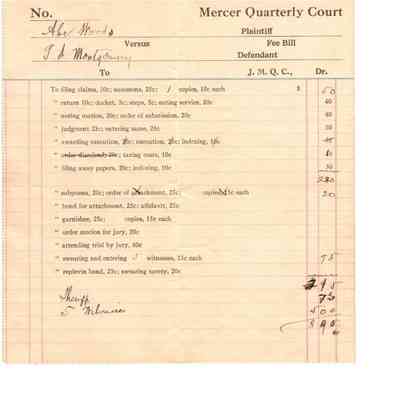 No. Mercer Quarterly Court
Abe Woods Plaintiff
Versus Fee Bill
T J Montgomery Defendant
To J. M. Q. C., Dr.
To filing claims, 10c; summons, 25c; 1 copies, 15c each $ 50
" return 10c; docket, 5c; steps, 5c; noting service, 20c 40
" noting motion, 20c; order of submission, 20c 40
" judgment 25c; entering same, 25c 50
" awarding execution, 25c; execution, 25c; indexing,
" order dismissed, 20c; taxing costs, 10c
" filing away papers, 20c; indexing, 10c 30
" subpoena, 20c; order of attachment, 25c; copies 15c each 20
" bond for attachment, 25c; affidavit, 25c
" garnishee, 25c; copies, 15c each
" order motion for jury, 20c
" attending trial by jury, 50c
" swearing and entering witnesses, 15c each 75
" replevin bond, 25c; swearing surety, 20c
Sheriff 75